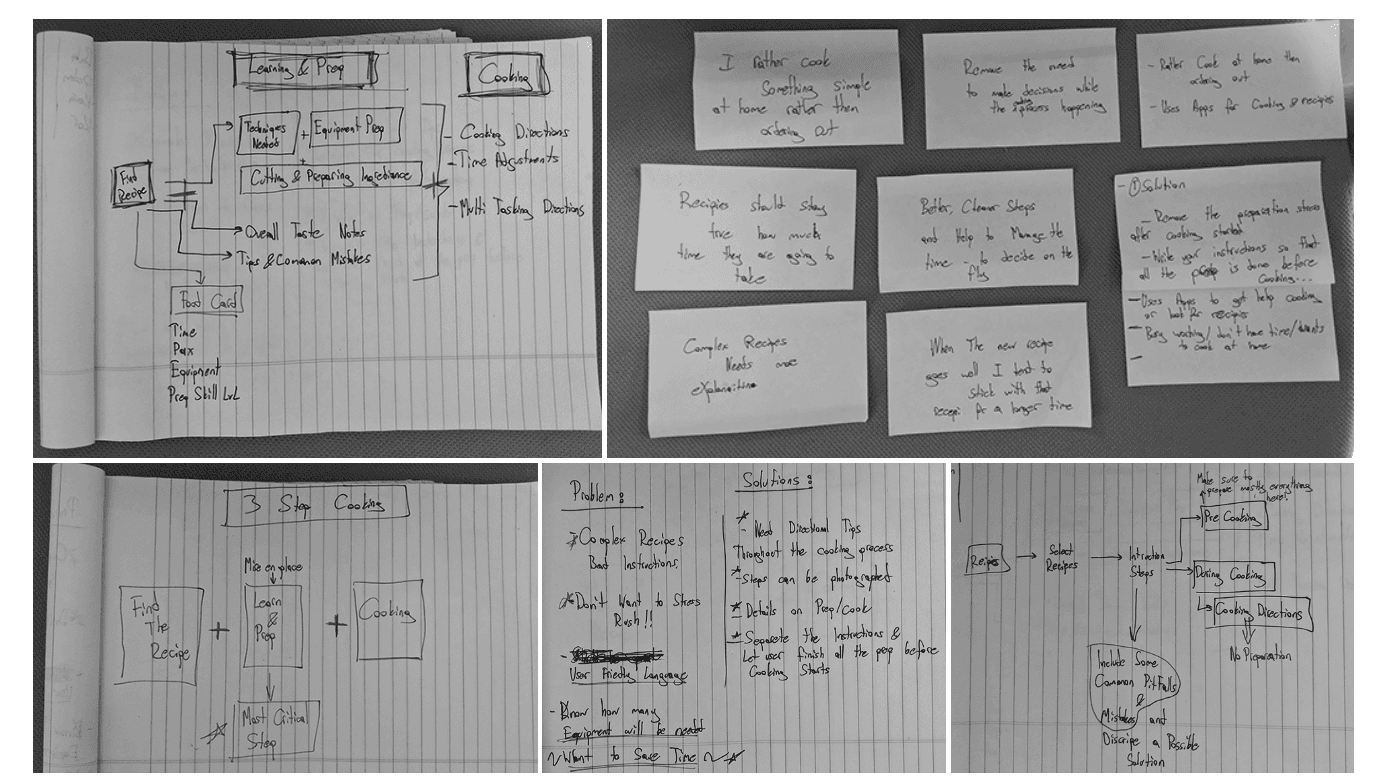 Learning & Prep
Cooking
Techniques
Needed
+
Equipment Prep
+
Cutting & Preparing Ingrediance
Find
Recipe
Overall Taste Notes
Tips & Common Mistakes
Food Card
Time
Pax
Equipment
Prep Skill LvL
- Cooking Directions
- Time Adjustments
- Multi Tasking Directions
I rather cook
Something simple
at home rather then
ordering out
Remove the need
to make decisions while
the process happening
- Rather Cook at home then
ordering out
- Uses Apps for Cooking & recipies
Recipies should stay
true how much
time they are going to
take
Better, Cleaner Steps
and Help to Manage the
time - to decide on the
fly
- ① Solution
- Remove the preparation stress
after cooking started
- Write your instructions so that
all the prep is done before
Cooking...
- Uses Apps to get help cooking
or look for recipies
- Busy working/ don't have time/wants
to cook at home
-
Complex Recipes
Needs more
explanation
When The new recipe
goes well I tend to
stick with that
recepi for a longer time
3 Step Cooking
Mise en place
Find
The
Recipe
+
Learn
&
Prep
+
Cooking
Most Critical
Step
Problem :
Complex Recipes
Bad Instructions.
Don't Want to Stress
Rush!!
-
User Friedly Language
- Know how many
Equipment will be needed
~ Want to Save Time ~
Solutions :
- Need Directional Tips
Throughout the cooking process
- Steps can be photographed
- Details on Prep/Cook
- Separate the Instructions &
Let user finish all the prep before
Cooking Starts
Make sure to
prepare mostly everything
here!
Pre Cooking
Recipes
Select
Recipes
Intruction
Steps
During Cooking
Cooking Directions
No Preparation
Include Some
Common PitFalls
&
Mistakes and
Discripe a Possible
Solution